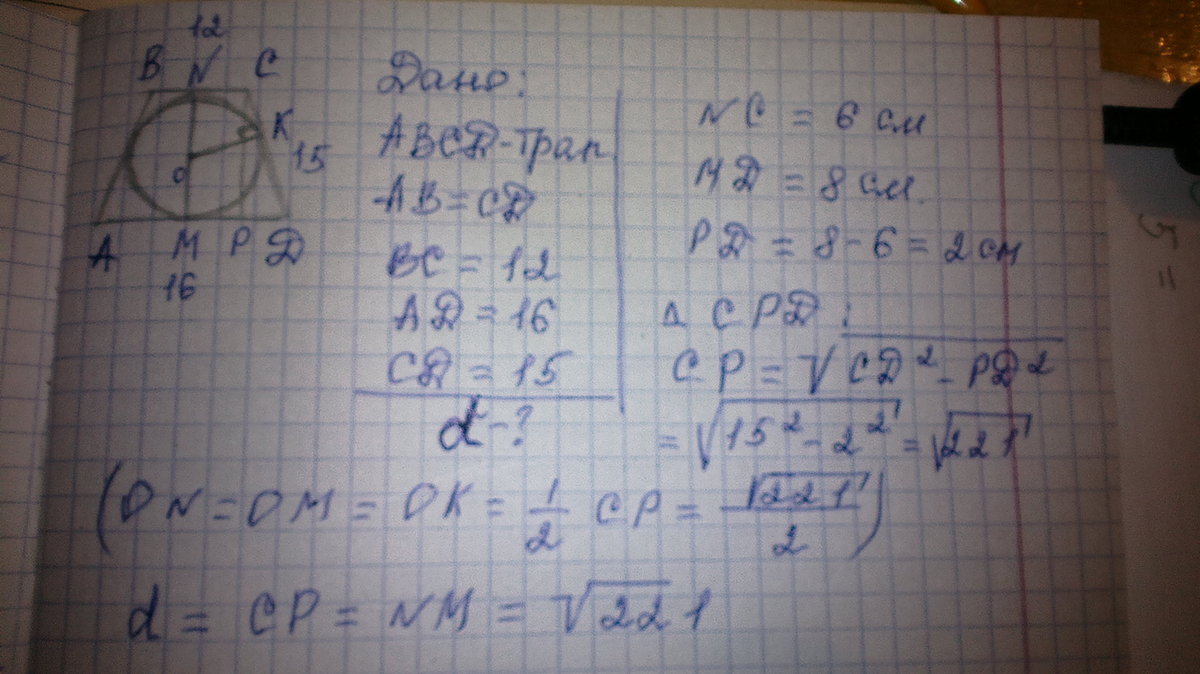 12
B N C
K
15
O
A M P D
16
Дано:
ABCD-трап.
AB = CD
BC = 12
AD = 16
CD = 15
d - ?
NC = 6 см
MD = 8 см.
PD = 8 - 6 = 2 см
△ CPD :
CP = √CD² - PD²
= √15² - 2² = √221
(ON = OM = OK = 1/2 CP = √221/2)
d = CP = NM = √221
5 =